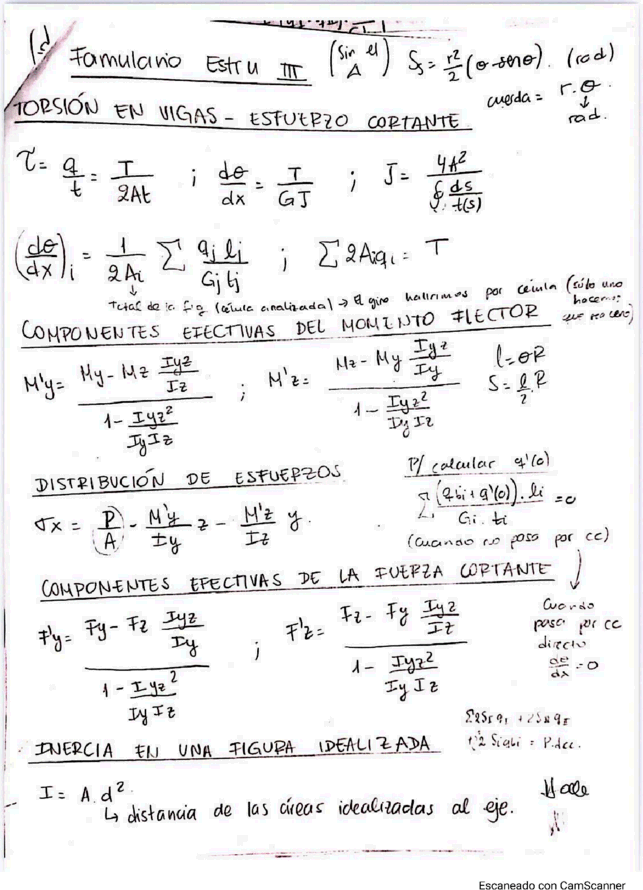 Formulario Estru III (Sin el Δ) S_s = r²/2 (θ - senθ). (rad)
cuerda = r.θ
↓
rad.
TORSIÓN EN VIGAS - ESFUERZO CORTANTE
τ = q/t = T/2At ; dθ/dx = T/GJ ; J = 4A²/∮ ds/t(s)
(dθ/dx)i = 1/2Ai Σ qj lj/Gj tj ; Σ 2Aiqi = T
↓
Total de la fig (célula analizada) → El giro hallarimos por célula (sólo uno
COMPONENTES EFECTIVAS DEL MOMENTO FLECTOR
M'y = (My - Mz Iyz/Iz)/(1 - Iyz²/IyIz) ; M'z = (Mz - My Iyz/Iy)/(1 - Iyz²/IyIz)
l = θR
S = l/2 R
DISTRIBUCIÓN DE ESFUERZOS
σx = (P/A) - M'y/Iy z - M'z/Iz y.
P/ calcular q'(o)
Σ (qbi + q'(o)). li / Gi. ti = 0
(cuando no pasa por cc)
COMPONENTES EFECTIVAS DE LA FUERZA CORTANTE
F'y = (Fy - Fz Iyz/Iy)/(1 - Iyz²/IyIz) ; F'z = (Fz - Fy Iyz/Iz)/(1 - Iyz²/IyIz)
Cuando
pasa por cc
directo
dθ/dx = 0
INERCIA EN UNA FIGURA IDEALIZADA
I = A.d²
↳ distancia de las áreas idealizadas al eje.
Escaneado con CamScanner